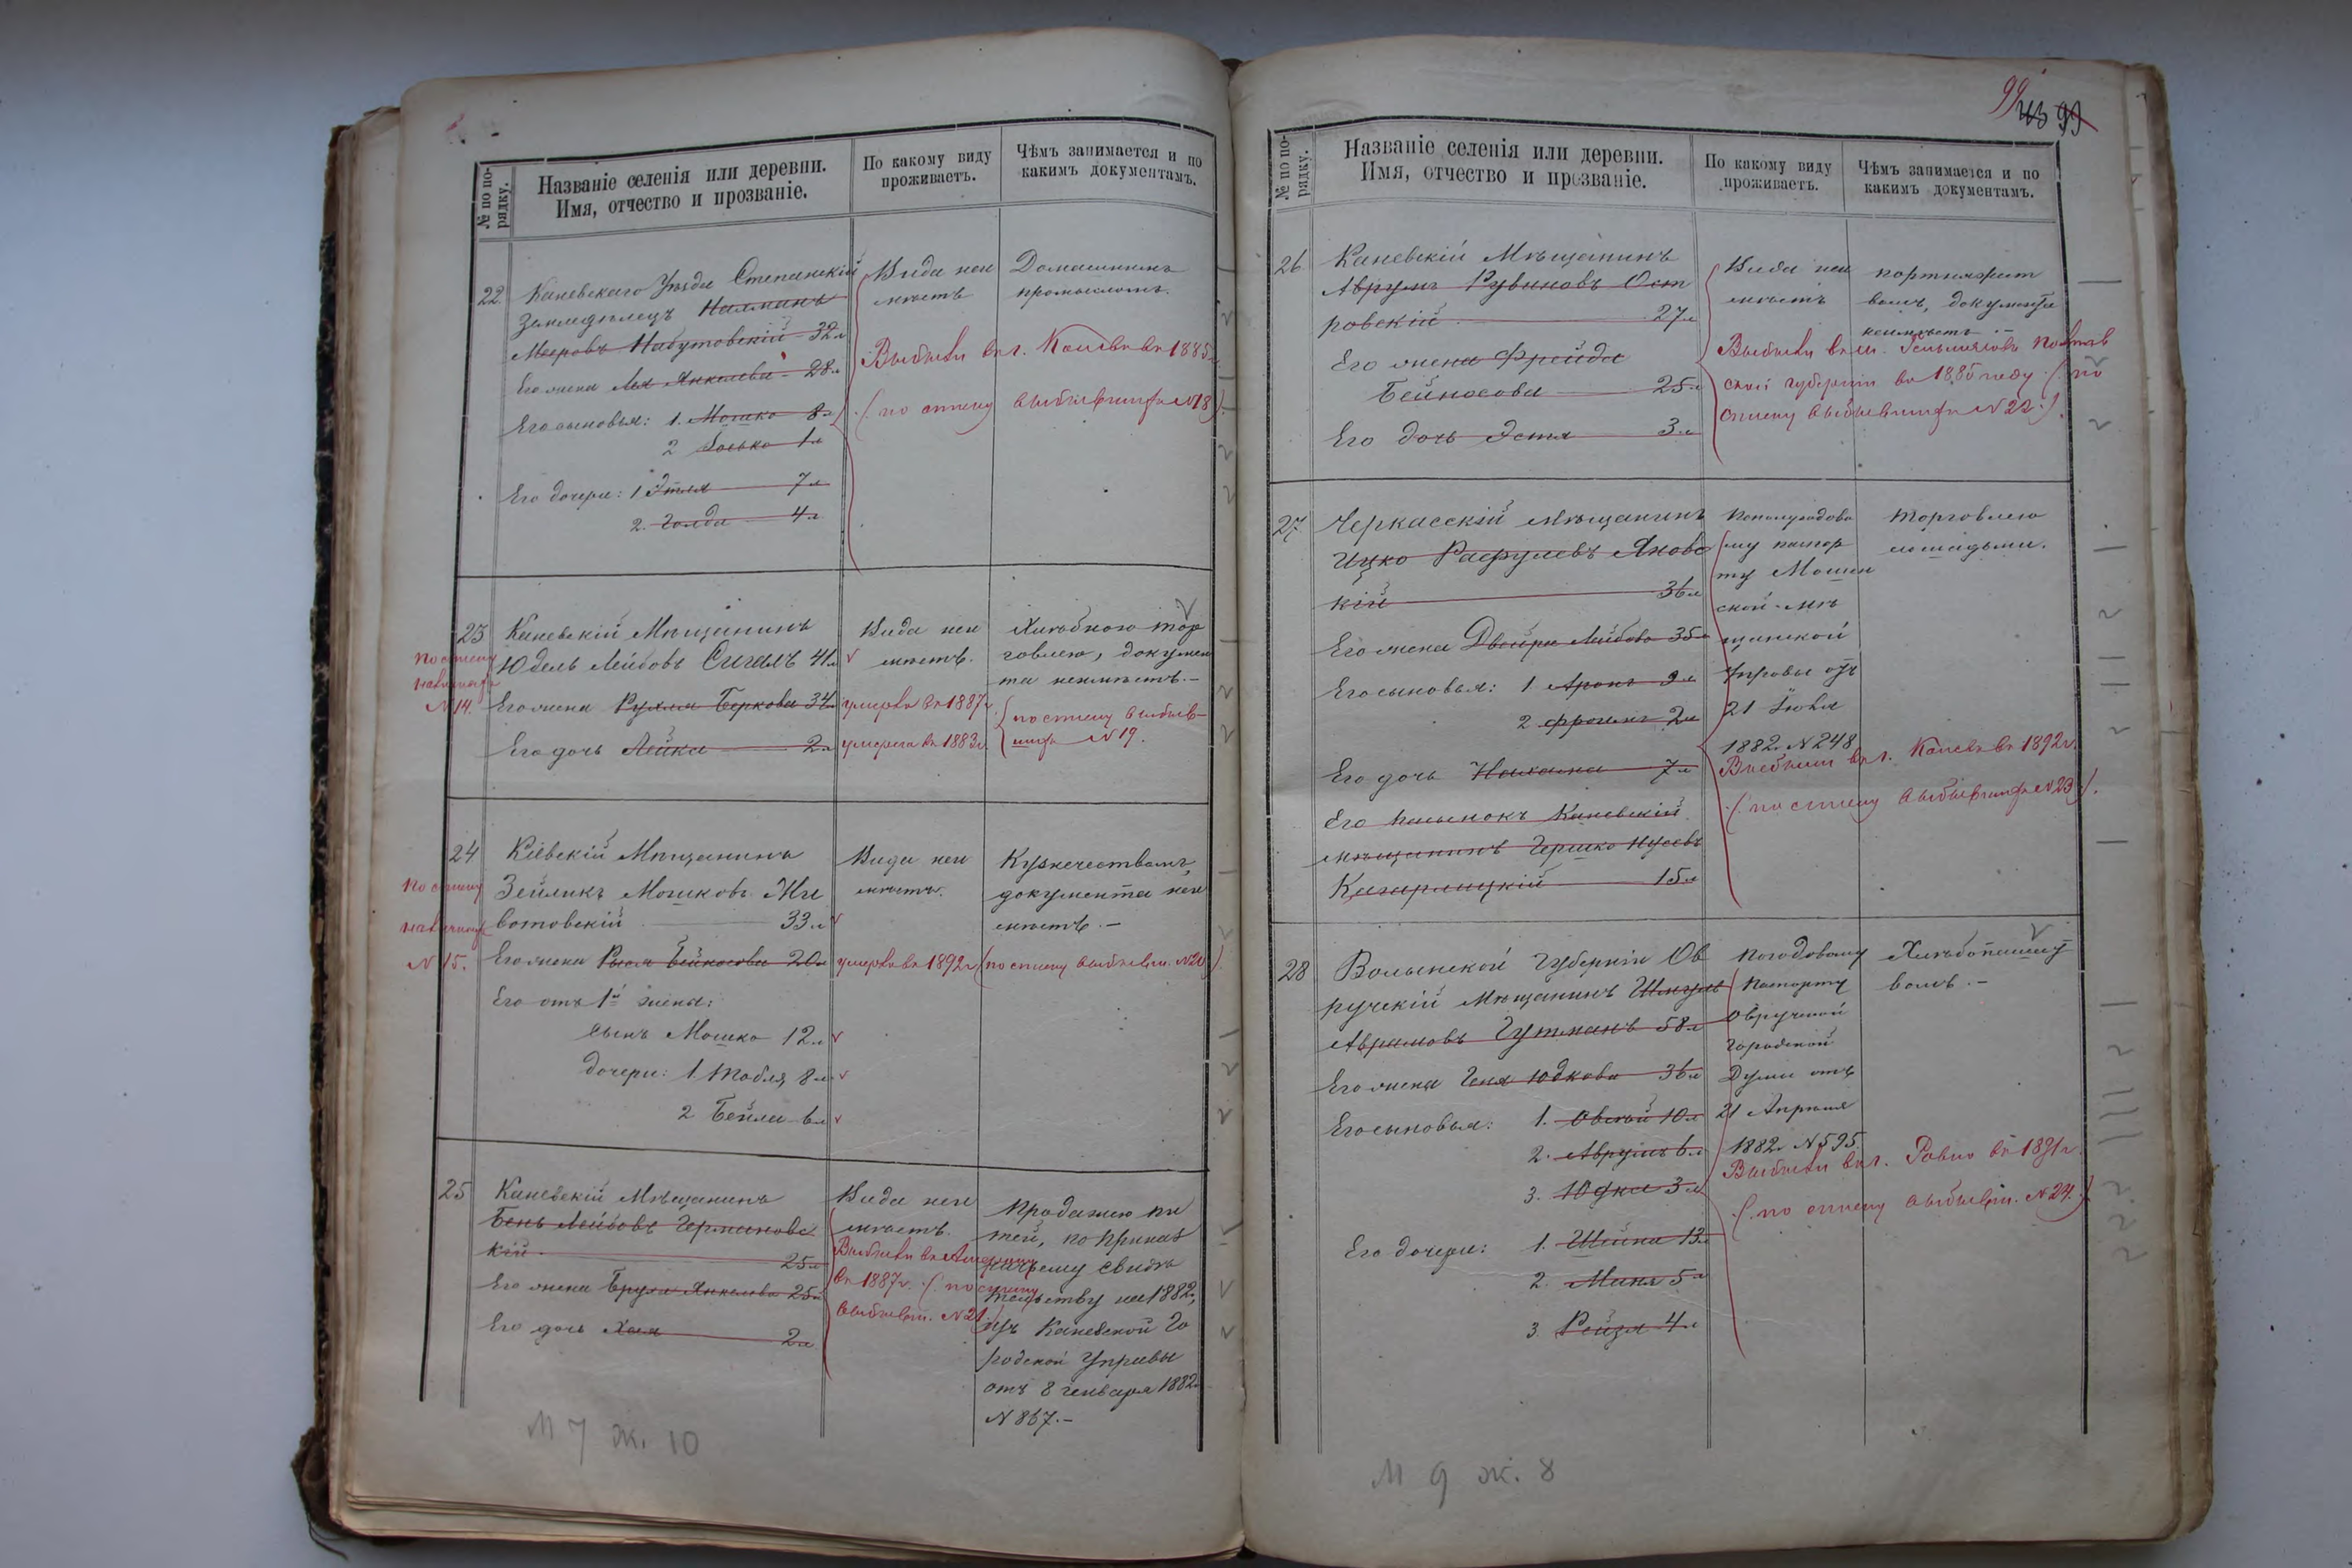 № по по-
рядку.
Названіе селенія или деревни.
Имя, отчество и прозваніе.
По какому виду
проживаетъ.
Чѣмъ занимается и по
какимъ документамъ.
22
Каневскаго Уѣзда Степанскій
Земледѣлецъ
Мееровъ Набутовскій 32 л
Его жена Лея Янкелева 28 л
Его сыновья: 1. Мошко 8 л
2 Иосько 1 л
Его дочери: 1 Этля 7 л
2. Голда 4 л
Вида неи
мѣетъ
Домашнимъ
промысломъ.
Выбыли въ г. Каневъ въ 1885
(по списку выбывшихъ № 18)
23
По списку
наличныхъ
№ 14.
Каневскій Мѣщанинъ
Юдель Лейбовъ Сигалъ 41 л
Его жена Рухля Беркова 34 л
Его дочь Лейка 2 л
Вида неи
мѣетъ.
умерла въ 1887 г.
умерла въ 1883 г.
Хлѣбною тор
говлею, докумен
та неимѣетъ.-
(по списку выбыв-
шихъ № 19.
24
По списку
наличныхъ
№ 15.
Кіевскій Мѣщанинъ
Зейликъ Мошковъ Жи
вотовскій 33 л
Его жена Рыся Бейносова 20 л
Его отъ 1й жены:
сынъ Мошко 12 л
дочери: 1 Тобля 8 л
2 Бейла 6 л
Вида неи
мѣетъ.
умерла въ 1892 г.
Кузнечествомъ,
документа неи
мѣетъ.-
(по списку выбывш. № 20).
25
Каневскій Мѣщанинъ
Бень Лейбовъ Германовс
кій 25 л
Его жена Бруха Янкелева 25 л
Его дочь Хая 2 л
Вида неи
мѣетъ.
Выбыли въ Америку
въ 1887 г. (по списку
выбывш. № 21)
Продажею пи
тей, по приказ
чичьему свидѣ
тельству на 1882,
изъ Каневской Го
родской Управы
отъ 8 Генваря 1882
№ 867.-
М 7 ж. 10
99
№ по по-
рядку.
Названіе селенія или деревни.
Имя, отчество и прозваніе.
По какому виду
проживаетъ.
Чѣмъ занимается и по
какимъ документамъ.
26
Каневскій Мѣщанинъ
Аврумъ Рувиновъ Ост
ровскій 27 л
Его жена Фрейда
Бейносова 25 л
Его дочь Эстя 3 л
Вида неи
мѣетъ
портняжест
вомъ, документа
неимѣетъ.-
Полтав
ской губерніи въ 1885 году (по
списку выбывшихъ № 22).
27
Черкасскій мѣщанинъ
Ицко Рафулевъ Яновс
кій 36 л
Его жена Двойра Лейбова 35 л
Его сыновья: 1 Аронъ 9 л
2 Фроимъ 2 л
Его дочь Нахама 7 л
Его пасынокъ Каневскій
мѣщанинъ Гершко Нусевъ
Кагарлицкій 15 л
Пополугодово
му паспор
ту Мошен
ской мѣ
щанской
Управы отъ
21 Іюня
1882 г. № 248
Торговлею
лошадьми.
Выбыли въ г. Каневъ въ 1892 г.
(по списку выбывшихъ № 23).
28
Волынской Губерніи Ов
ручскій Мѣщанинъ Шмуль
Аврамовъ Гутманъ 58 л
Его жена Геня Юдкова 36 л
Его сыновья: 1. Овсей 10 л
2. Аврумъ 6 л
3. Юдка 3 л
Его дочери: 1. Шейна 13 л
2. Миня 5 л
3 Рейзя 4 л
Погодовому
паспорту
Овручской
Городской
Думы отъ
21 Апрѣля
1882 г. № 595
Хлѣбопашест
вомъ.-
Выбыли въ г. Ровно въ 1891 г.
(по списку выбывш. № 24.)
М 9 ж. 8